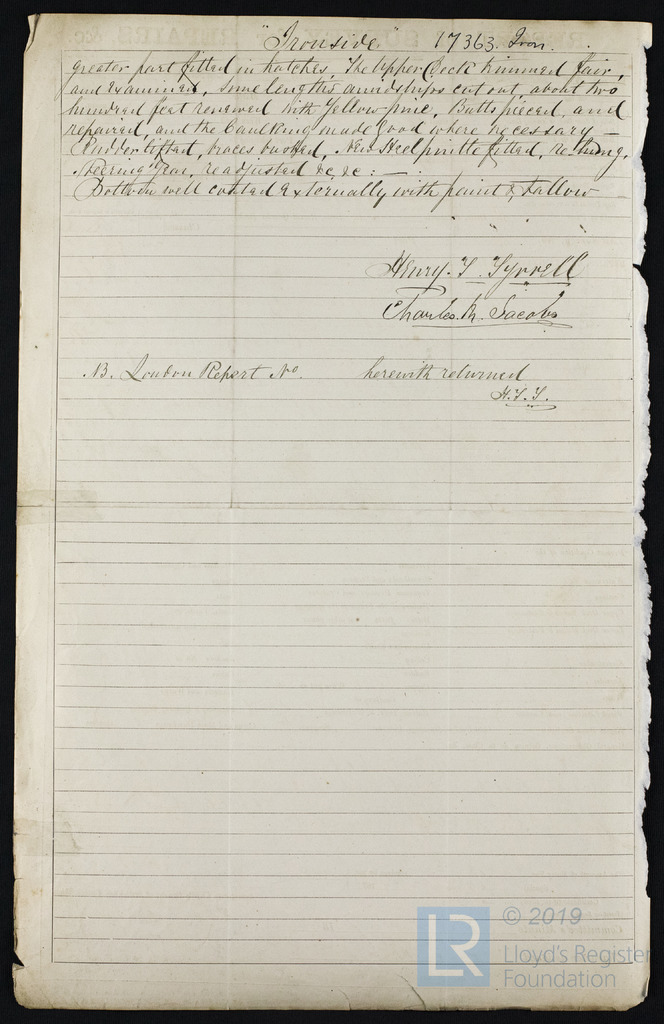 "Ironside" 17363. Iron.
greater part fitted in hatches. The Upper Deck trimmed fair,
and examined, some lengths amidships cut out, about two
hundred feet renewed with Yellow pine, Butts pieced, and
repaired, and the Caulking made good where necessary —
Rudder lifted, braces bushed, New Heel pintle fitted, re-hung,
Steering Gear, readjusted &c, &c : —
Bottom well coated externally with paint & tallow
Henry. T. Tyrrell
Charles. R. Jacobs
NB. London Report No herewith returned
H.T.T.
© 2019
LR
Lloyd's Register
Foundation